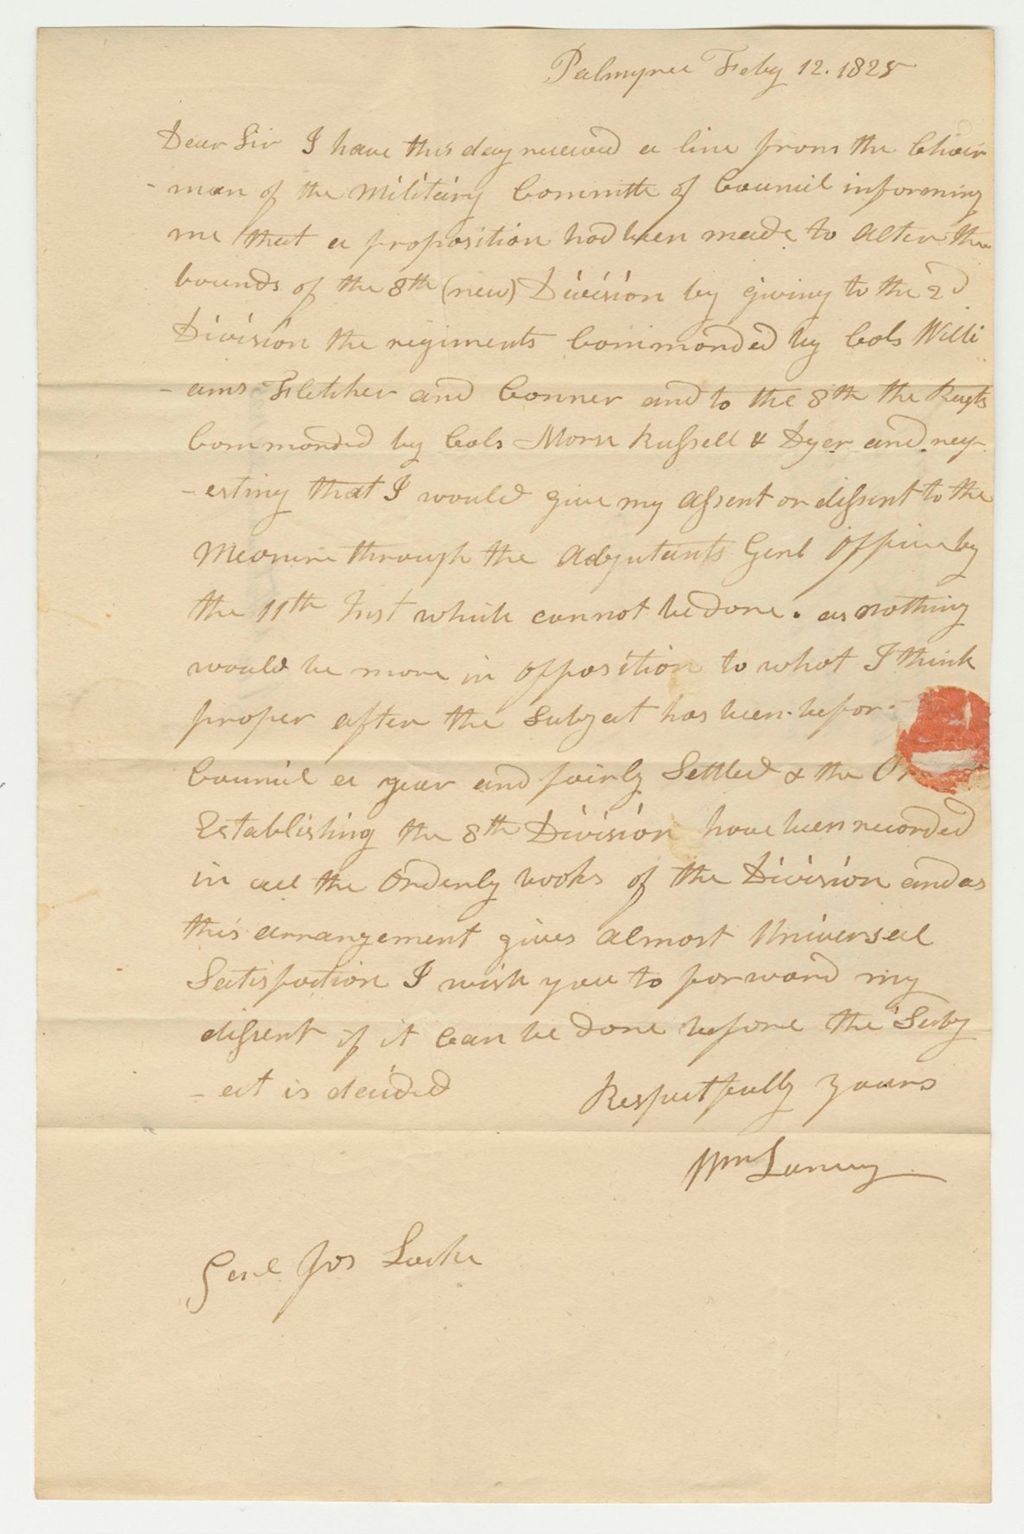 Palmyra Feby 12. 1828
Dear Sir I have this day received a line from the Chair
- man of the Military Committe of Council informing
me that a proposition had been made to alter the
bounds of the 8th (new) Division by giving to the 2d
Division the regiments Commanded by Cols Willi
- ams Fletcher and Conner and to the 8th the Regts
Commanded by Cols Morse Russell & Dyer and req
- esting that I would give my assent or dissent to the
Measure through the Adjutants Genl Office by
the 11th Inst which cannot be done. as nothing
would be more in opposition to what I think
proper after the Subject has been befor
Council a year and fairly Settled & the
Establishing the 8th Division have been recorded
in all the Orderly books of the Division and as
this arrangement gives almost Universal
Satisfaction I wish you to forward my
dissent if it can be done before the Subj
- ect is decided
Respectfully yours
Wm Lancey
Genl Jos Locke